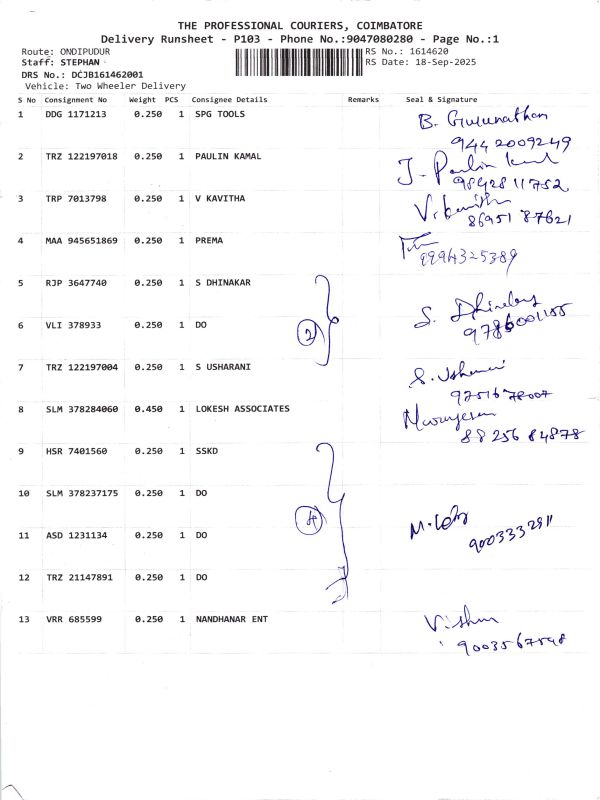 THE PROFESSIONAL COURIERS, COIMBATORE
Delivery Runsheet - P103 - Phone No.:9047080280 - Page No.:1
Route: ONDIPUDUR RS No.: 1614620
Staff: STEPHAN RS Date: 18-Sep-2025
DRS No.: DCJB161462001
Vehicle: Two Wheeler Delivery
S No Consignment No Weight PCS Consignee Details Remarks Seal & Signature
1 DDG 1171213 0.250 1 SPG TOOLS B. Gurunathan
9442009249
2 TRZ 122197018 0.250 1 PAULIN KAMAL J. Paulin
9842811752
3 TRP 7013798 0.250 1 V KAVITHA V. Kavitha
86951 87621
4 MAA 945651869 0.250 1 PREMA
9994325389
5 RJP 3647740 0.250 1 S DHINAKAR S.
6 VLI 378933 0.250 1 DO 2
7 TRZ 122197004 0.250 1 S USHARANI S. Usharani
8 SLM 378284060 0.450 1 LOKESH ASSOCIATES Murugesan
88256 84878
9 HSR 7401560 0.250 1 SSKD
10 SLM 378237175 0.250 1 DO
11 ASD 1231134 0.250 1 DO 4
9003332911
12 TRZ 21147891 0.250 1 DO
13 VRR 685599 0.250 1 NANDHANAR ENT Vishnu
9003567598